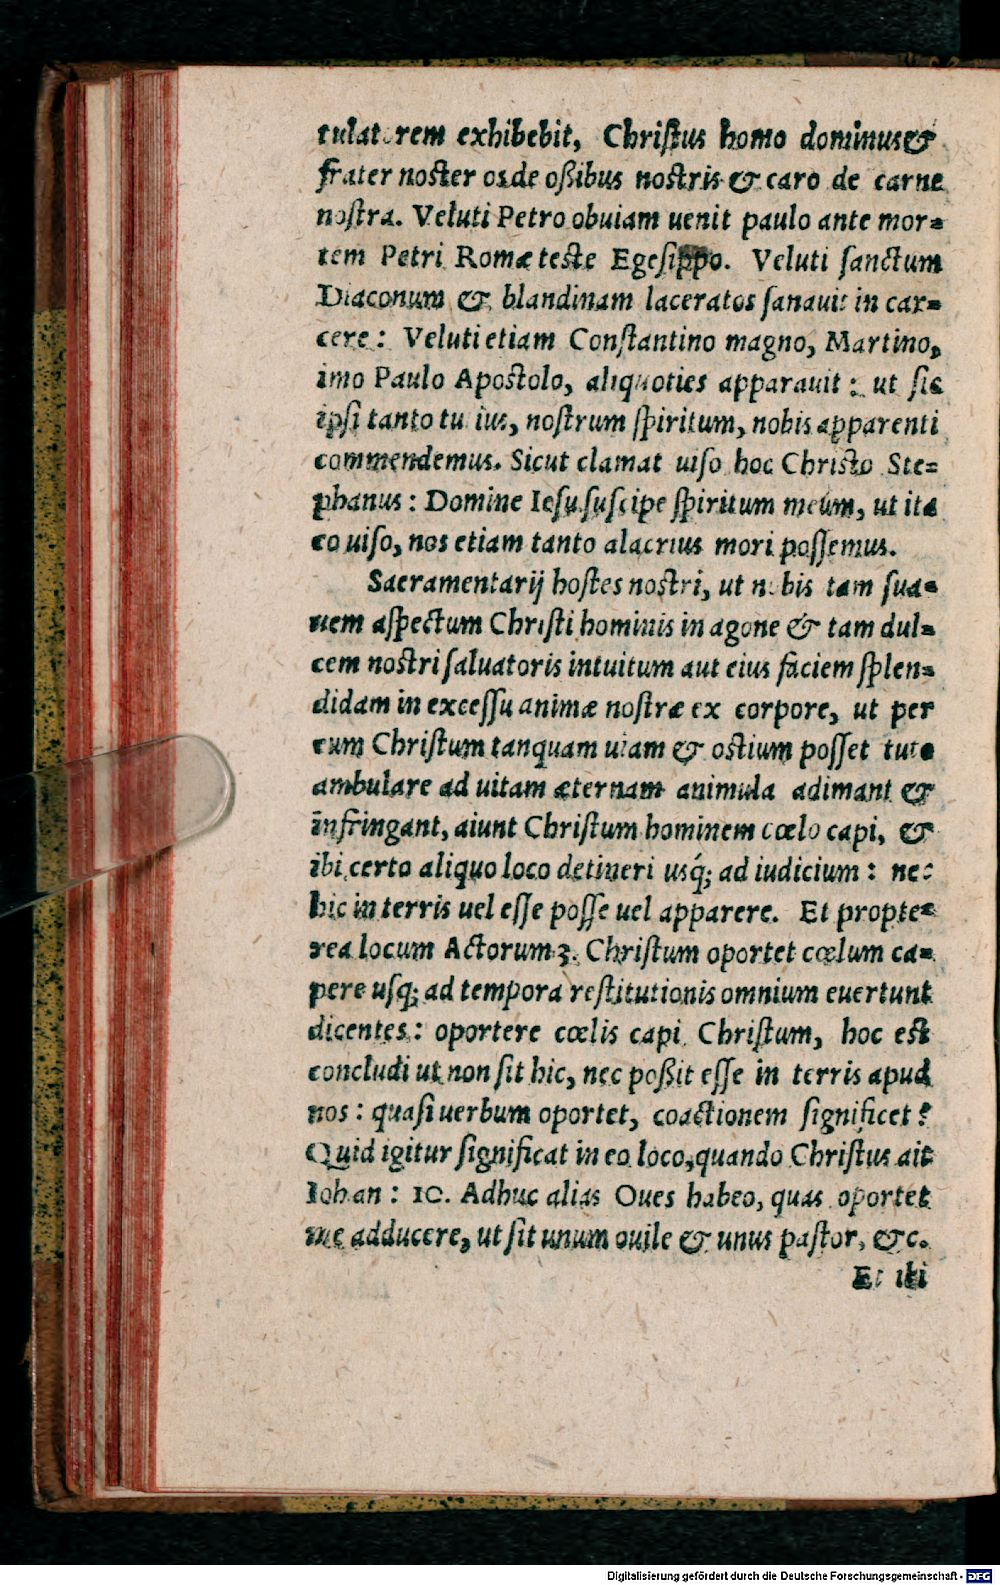 tulatorem exhibebit, Christus homo dominus &
frater noster os de oßibus nostris & caro de carne
nostra. Veluti Petro obuiam uenit paulo ante mor=
tem Petri Romæ teste Egesippo. Veluti sanctum
Diaconum & blandinam laceratos sanauit in car=
cere: Veluti etiam Constantino magno, Martino,
imo Paulo Apostolo, aliquoties apparauit: ut sic
ipsi tanto tutius, nostrum spiritum, nobis apparenti
commendemus. Sicut clamat uiso hoc Christo Ste=
phanus: Domine Iesu suscipe spiritum meum, ut ita
eo uiso, nos etiam tanto alacrius mori possemus.
Sacramentarij hostes nostri, ut nobis tam sua=
uem aspectum Christi hominis in agone & tam dul=
cem nostri saluatoris intuitum aut eius faciem splen=
didam in excessu animæ nostræ ex corpore, ut per
eum Christum tanquam uiam & ostium posset tuto
ambulare ad uitam æternam animula adimant &
infringant, aiunt Christum hominem cœlo capi, &
ibi certo aliquo loco detineri usq; ad iudicium: nec
hic in terris uel esse posse uel apparere. Et propte=
rea locum Actorum 3. Christum oportet cœlum ca=
pere usq; ad tempora restitutionis omnium euertunt
dicentes: oportere cœlis capi Christum, hoc est
concludi ut non sit hic, nec poßit esse in terris apud
nos: quasi uerbum oportet, coactionem significet?
Quid igitur significat in eo loco, quando Christus ait
Iohan: 10. Adhuc alias Oues habeo, quas oportet
me adducere, ut sit unum ouile & unus pastor, &c.
Et ibi
Digitalisierung gefördert durch die Deutsche Forschungsgemeinschaft - DFG